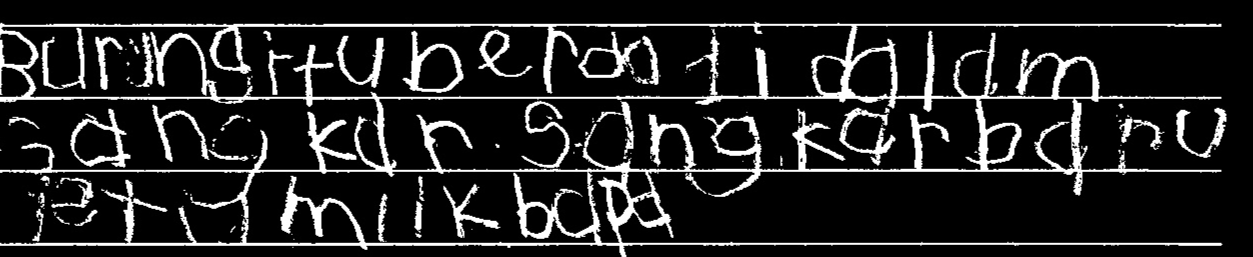 Burung itu beradadi dalam
sangkar. Sangkar baru
itu milk bapa